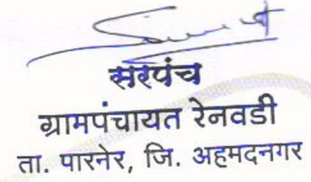 सरपंच
ग्रामपंचायत रेनवडी
ता. पारनेर, जि. अहमदनगर